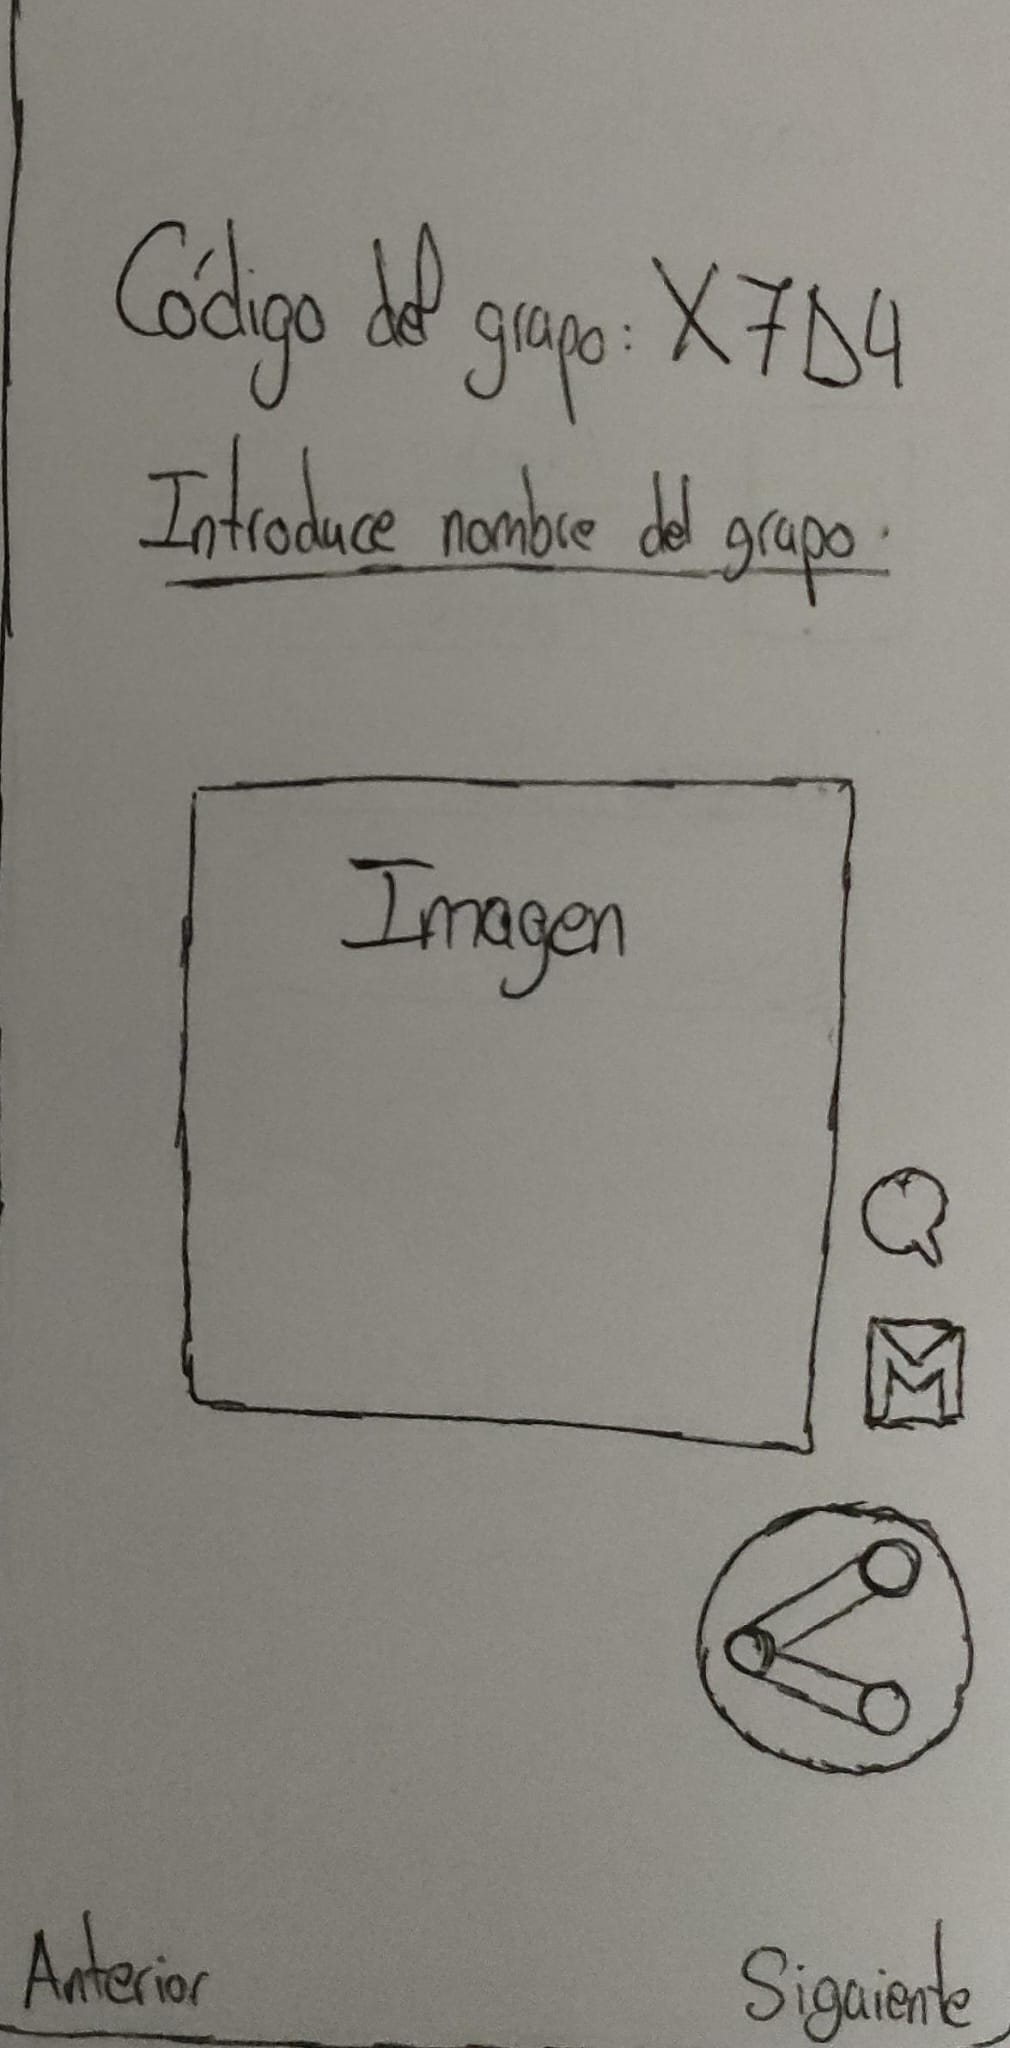 Código del grupo: X7D4
Introduce nombre del grupo.
Imagen
M
Anterior
Siguiente